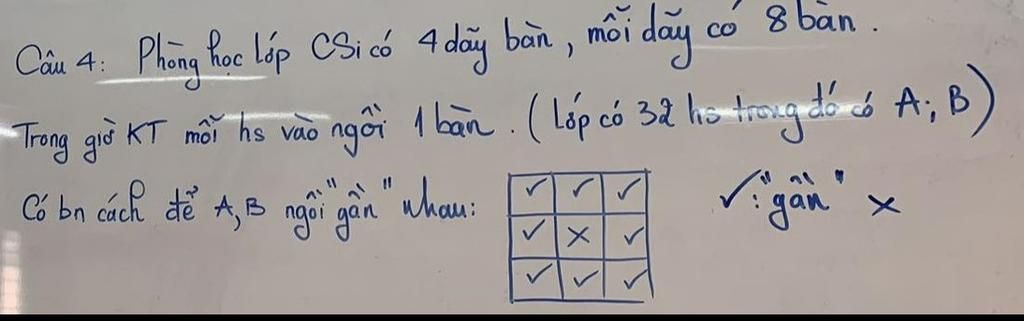 Câu 4: Phòng học lớp CSi có 4 dãy bàn, mỗi dãy có 8 bàn.
Trong giờ KT mỗi hs vào ngồi 1 bàn. (Lớp có 32 hs trong đó có A; B)
Có bn cách để A, B ngồi "gần" nhau:
✓ ✓ ✓
✓ × ✓
✓ ✓ ✓
✓: "gần" ×